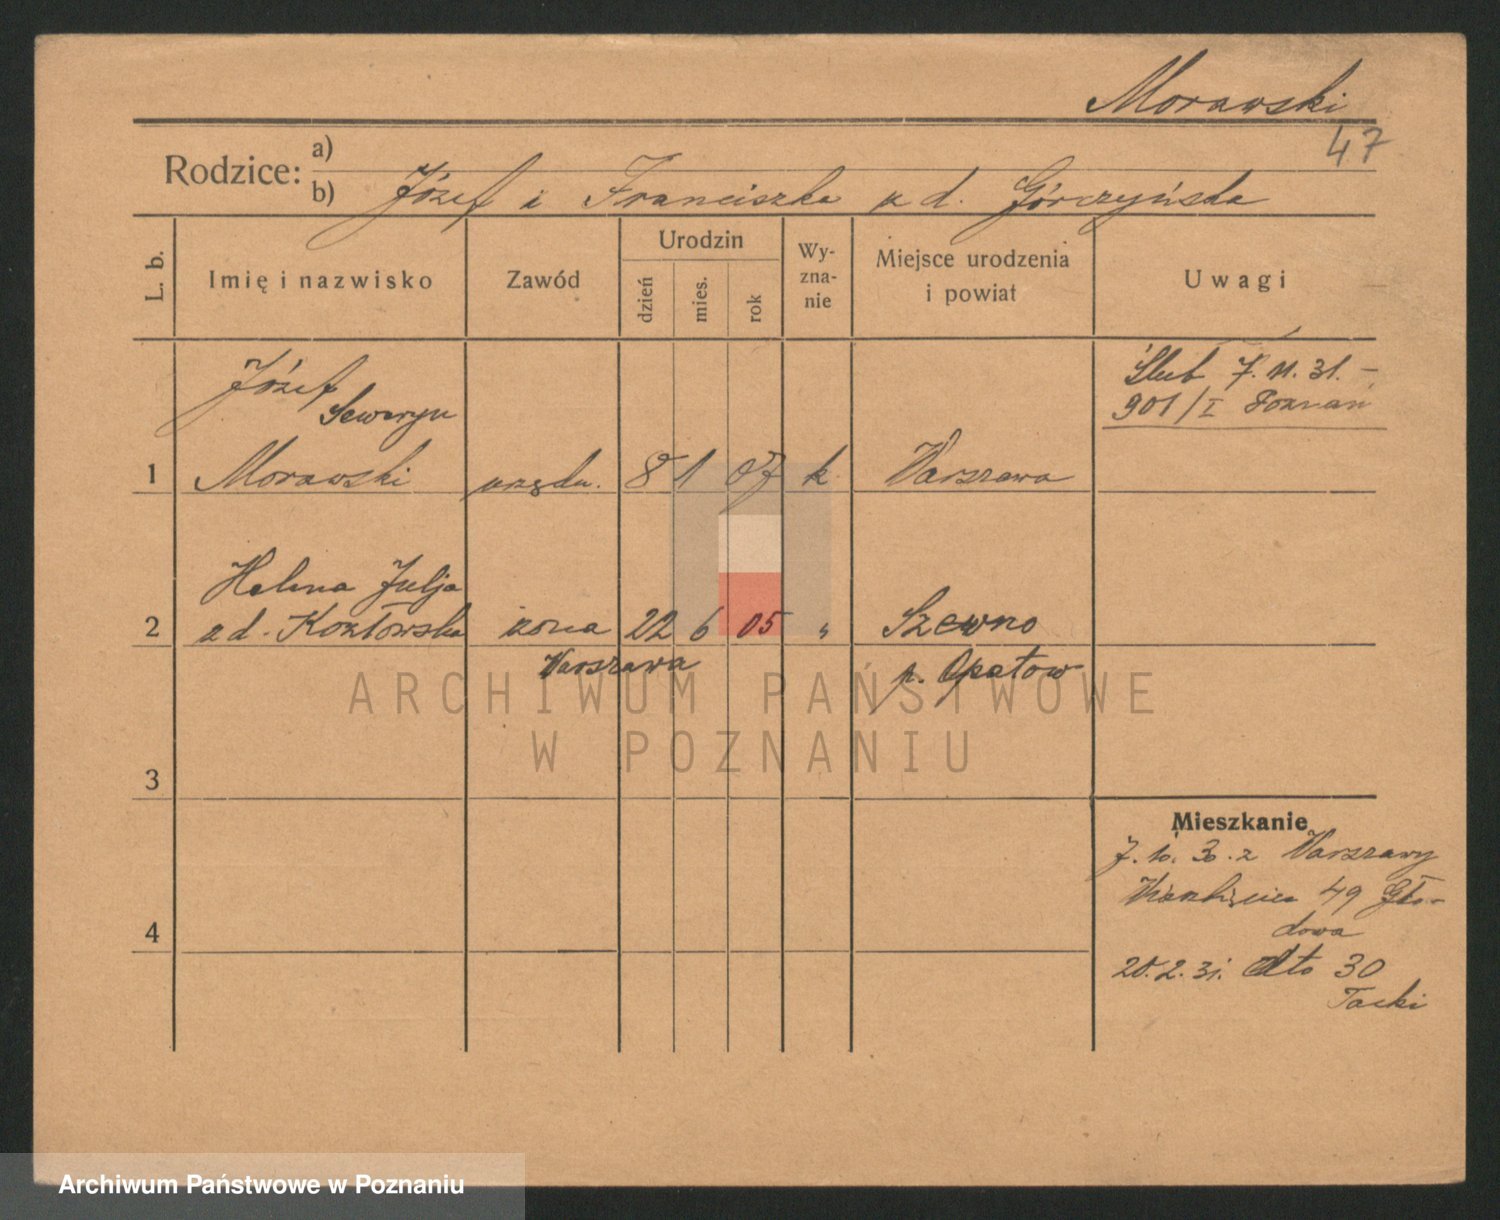 Morawski
47
Rodzice: a)
b) Józef i Franciszka z d. Górczyńska
L. b.
Imię i nazwisko
Zawód
Urodzin
dzień
mies.
rok
Wy-
zna-
nie
Miejsce urodzenia
i powiat
Uwagi
Józef
Seweryn
1 Morawski urzędn. 8 1 07 k Warszawa
Ślub 7. 11. 31. –
901/I Poznań
Helena Julja
2 z d. Kozłowska żona 22 6 05 " Szewno
Warszawa p. Opatow
3
4
Mieszkanie
7. 10. 30. z Warszawy
49 Gło-
dowa
20. 2. 31. dto 30
Tacki
ARCHIWUM PAŃSTWOWE
W POZNANIU
Archiwum Państwowe w Poznaniu